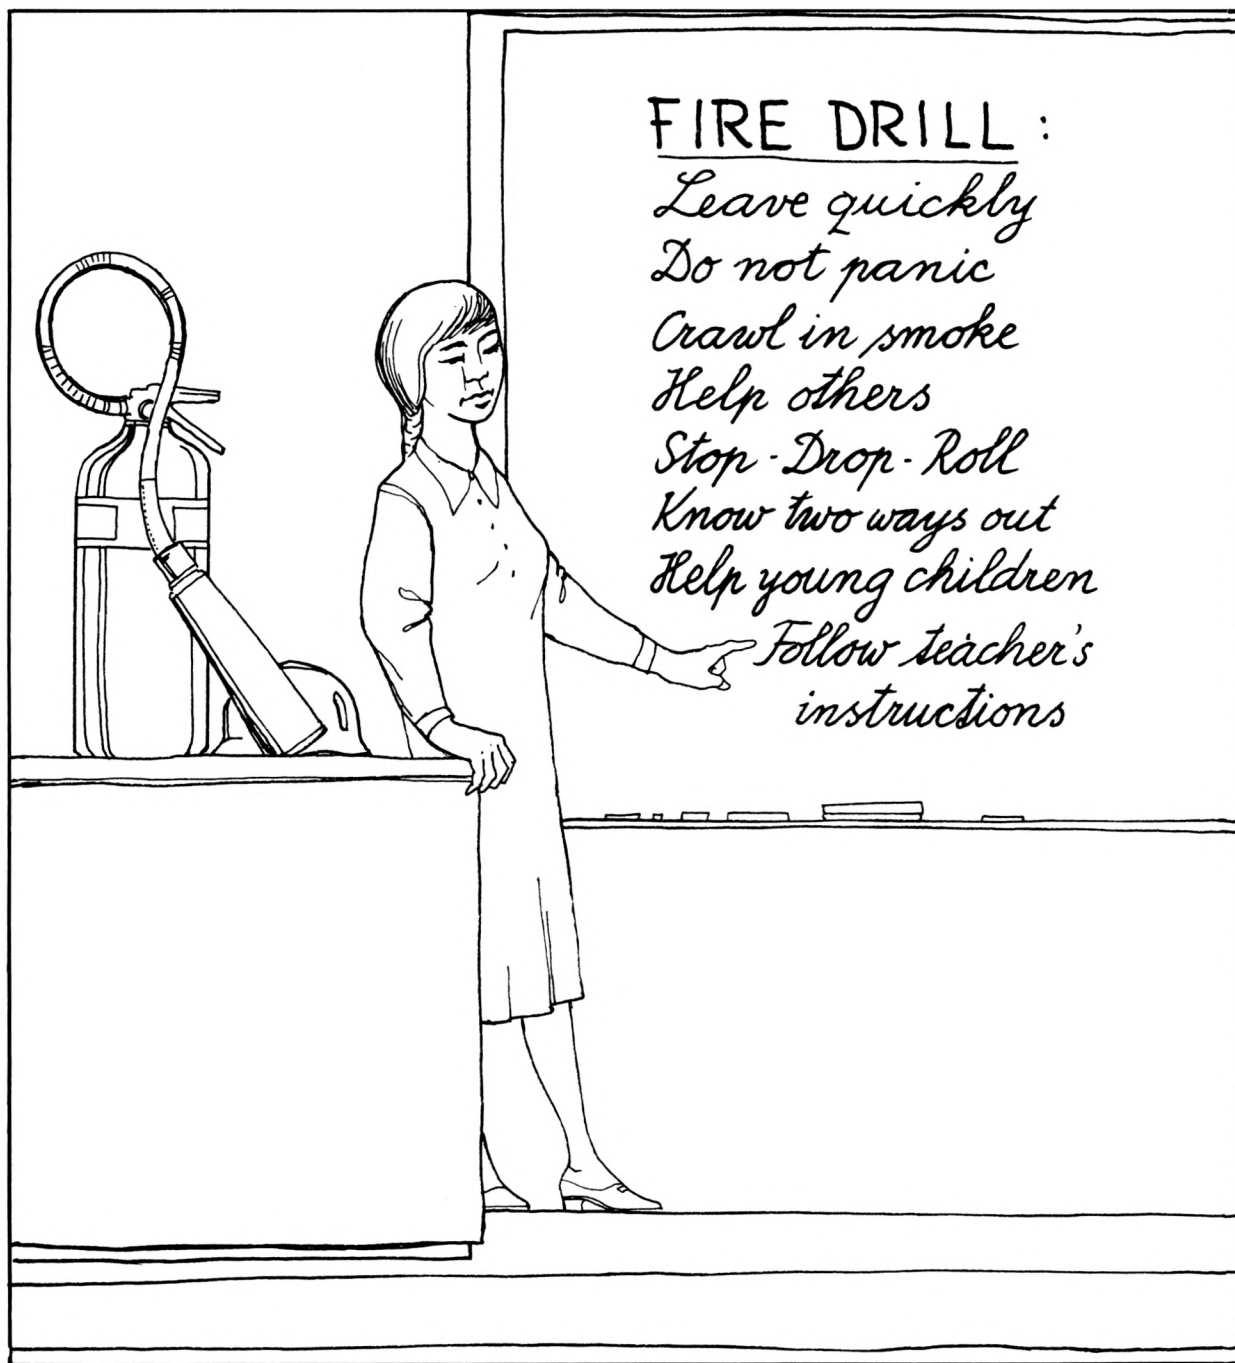 FIRE DRILL :
Leave quickly
Do not panic
Crawl in smoke
Help others
Stop - Drop - Roll
Know two ways out
Help young children
Follow teacher's
instructions